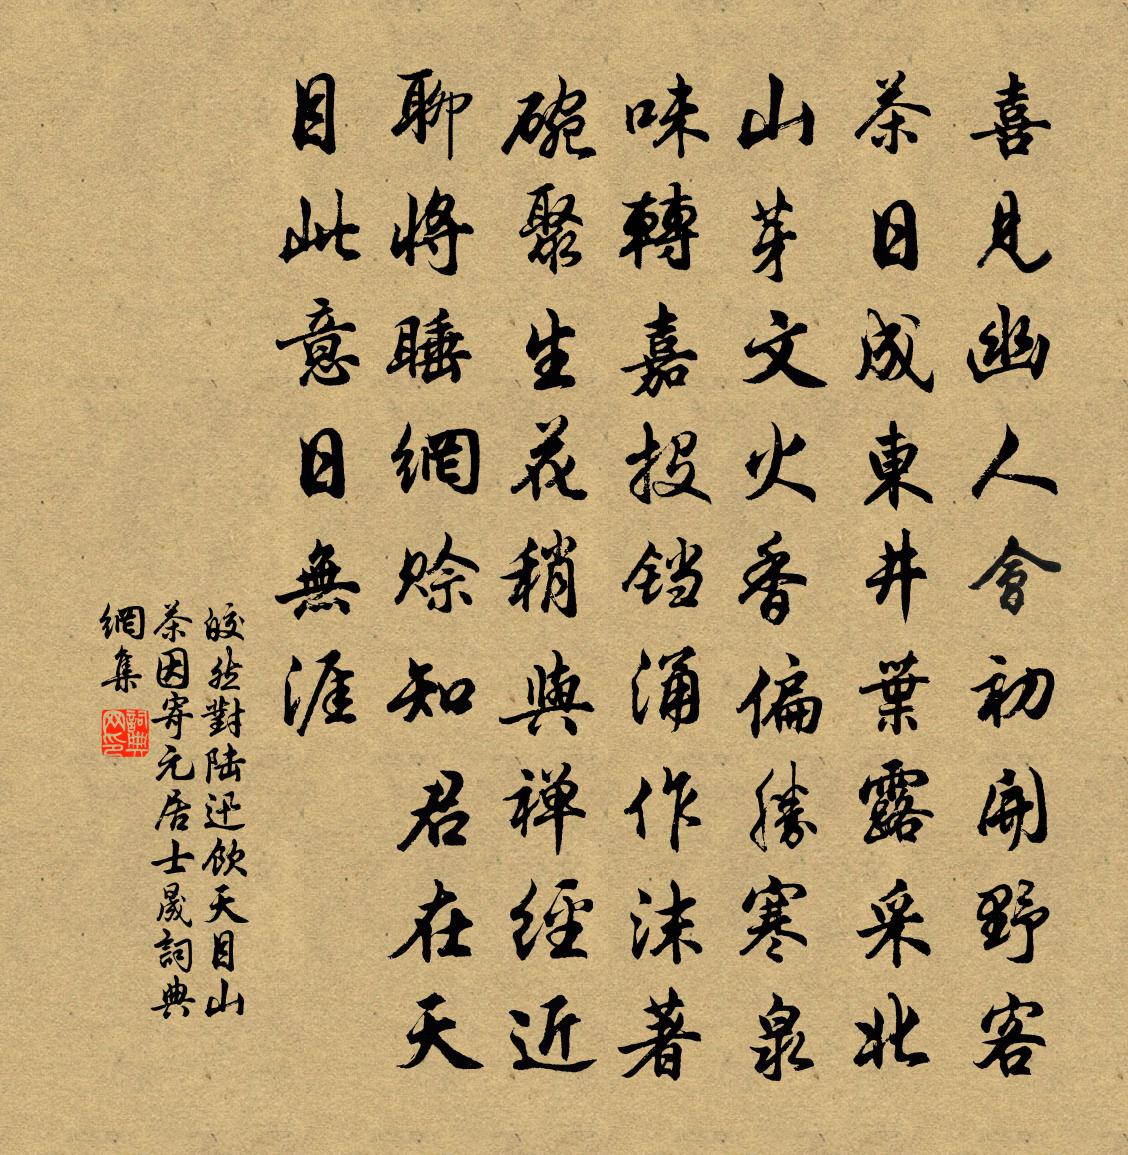 喜見幽人會初開野客
茶日成東井葉露采北
山芽文火香偏勝寒泉
味轉嘉投铛涌作沫著
碗聚生花稍與禅經近
聊將睡網赊知君在天
目此意日無涯
皎然對陆迅飲天目山
茶因寄元居士晟詞典
網集
詞典网印